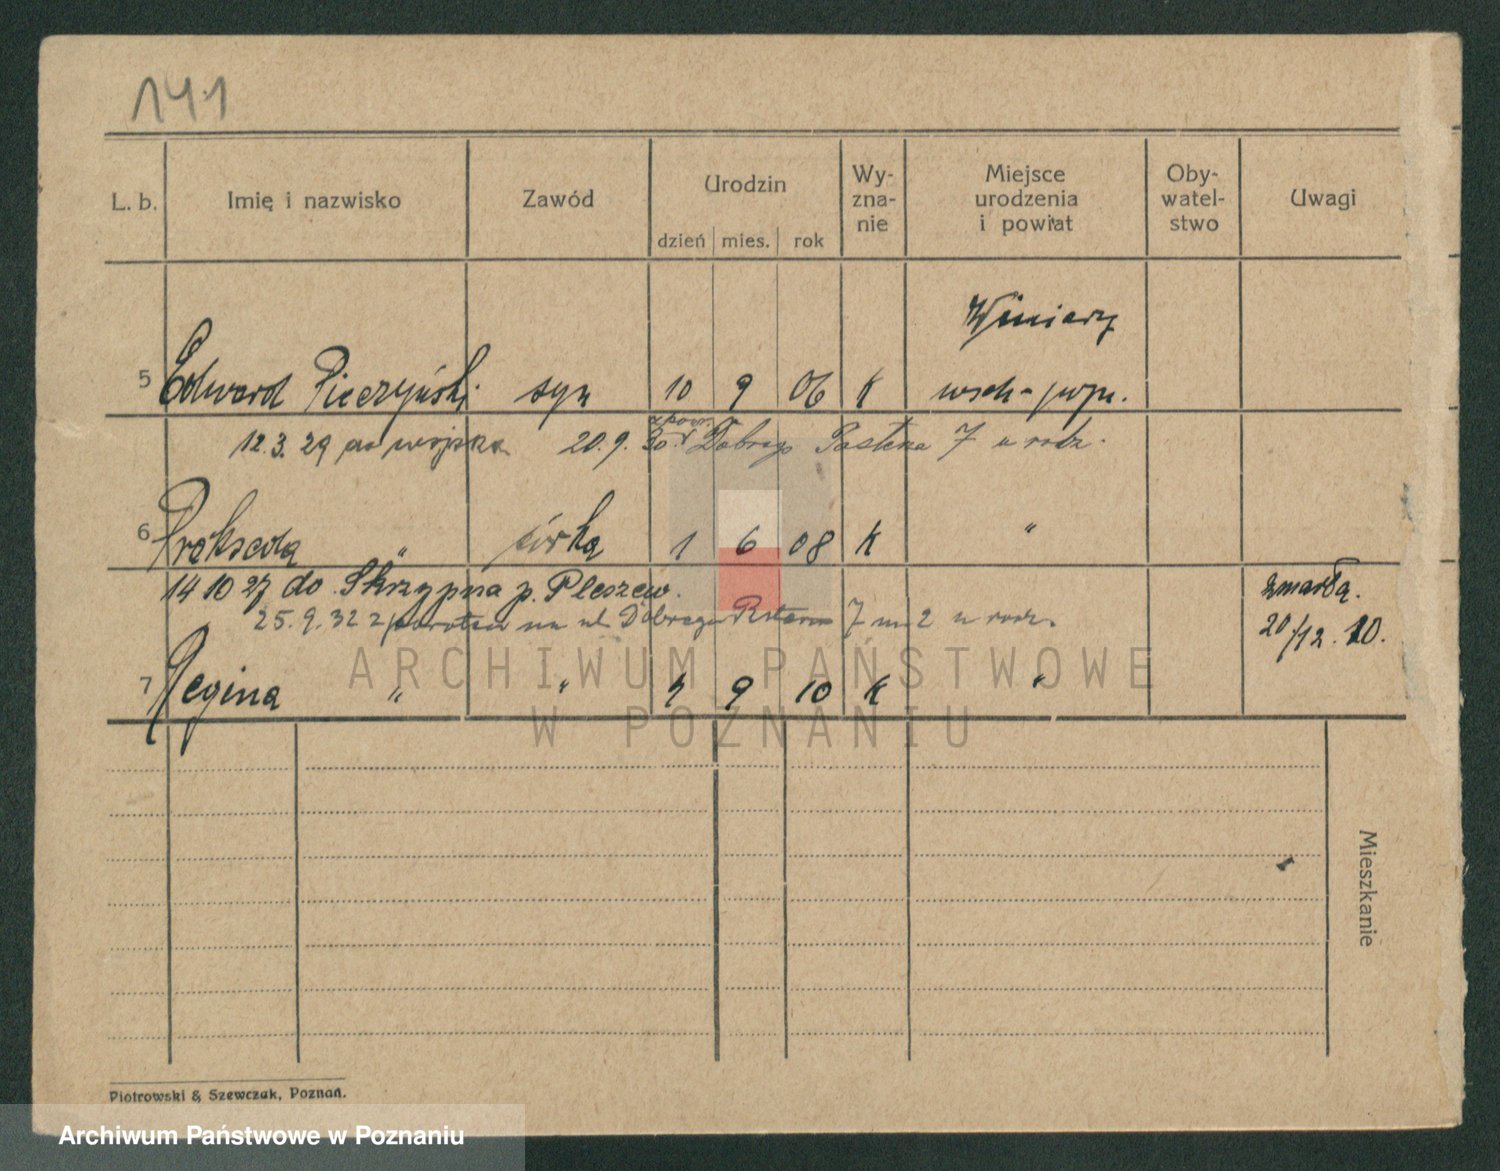 141
L. b. Imię i nazwisko Zawód Urodzin Wy-zna-nie Miejsce urodzenia i powiat Oby-watel-stwo Uwagi
dzień mies. rok
Winiary
5 Edward Pieczyński syn 10 9 06 K wsch-
12.3.29 do wojska 20.9.30 z pow. Dobrego Pasterza 7 u rodz.
6 Prakseda " córka 1 6 08 K "
14 10 27 do Skrzypna p. Pleszew.
zmarła.
25.9.32 z powrotem na ul Dobrego Pasterza 7 m 2 u rodz.
20/12.10.
7 Regina " " 7 9 10 K "
ARCHIWUM PAŃSTWOWE
W POZNANIU
Mieszkanie
Piotrowski & Szewczak, Poznań.
Archiwum Państwowe w Poznaniu